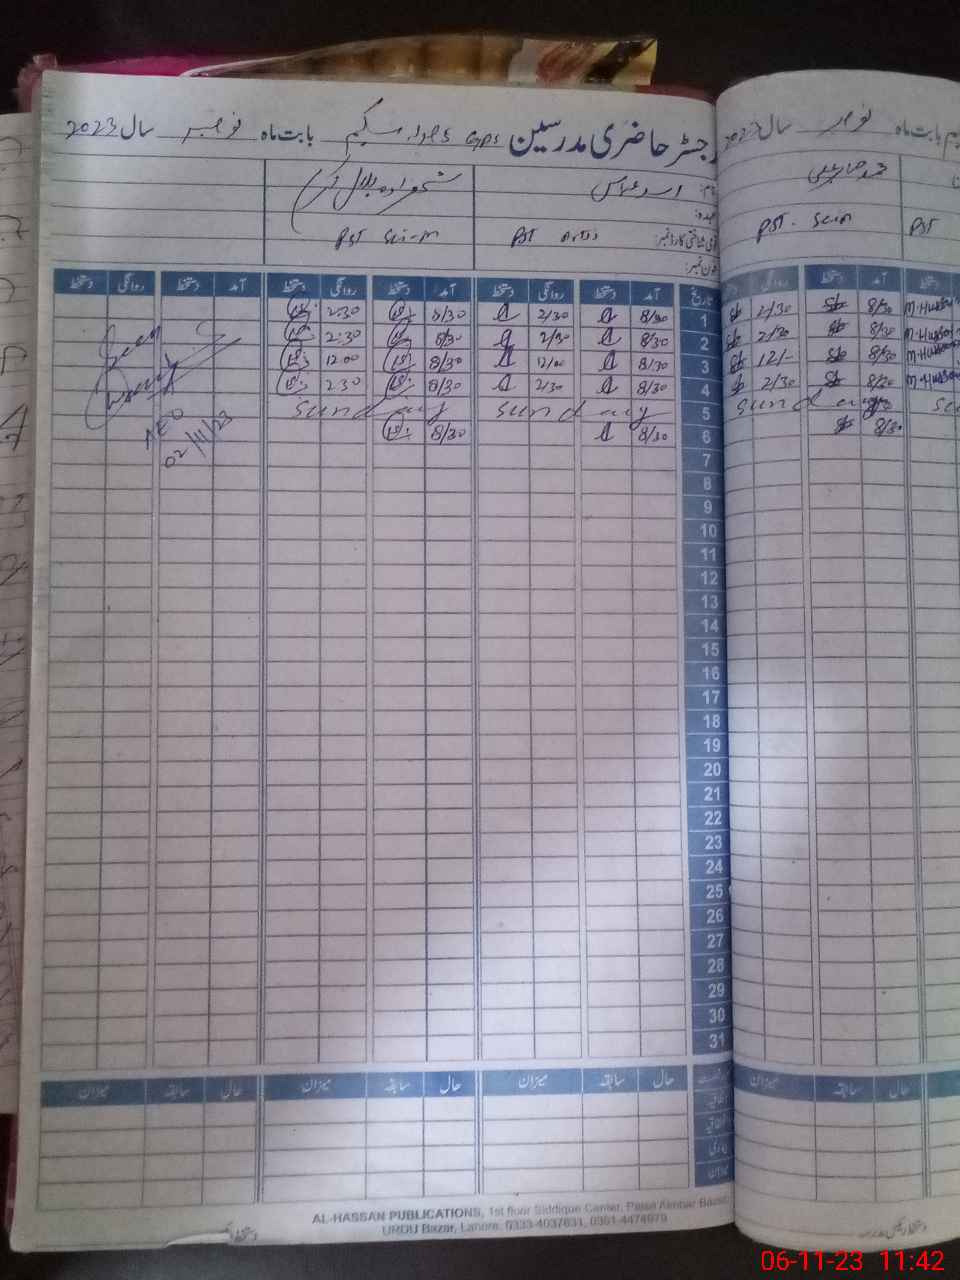 رجسٹر حاضری مدرسین GPS بابت ماہ نومبر سال 2023
نام: اسد عباس شہزادہ بلال
عہدہ:
قومی شناختی کارڈ نمبر: PST Arts PST Sci-M
فون نمبر:
تاریخ آمد دستخط روانگی دستخط آمد دستخط روانگی دستخط آمد دستخط روانگی دستخط
1 8/30 2/30 8/30 2:30
2 8/30 2/30 8/30 2:30
3 8/30 12/00 8/30 12:00
4 8/30 2/30 8/30 2:30
5 Sunday Sunday
6 8/30 8/30
7
8
9
10
11
12
13
14
15
16
17
18
19
20
21
22
23
24
25
26
27
28
29
30
31
Seen
AEO
02/11/23
حال سابقہ میزان حال سابقہ میزان حال سابقہ میزان
AL-HASSAN PUBLICATIONS, 1st floor Siddique Center, Paisa Akhbar Bazar,
URDU Bazar, Lahore. 0333-4037631, 0361-4474679
بابت ماہ نومبر سال 2023
PST PST - Scin
آمد دستخط روانگی
M-Hussain 8/30 2/30
M-Hussain 8/30 2/30
M-Hussain 8/30 12/-
M-Hussain 8/30 2/30
Sunday
8/30
حال سابقہ میزان
06-11-23 11:42